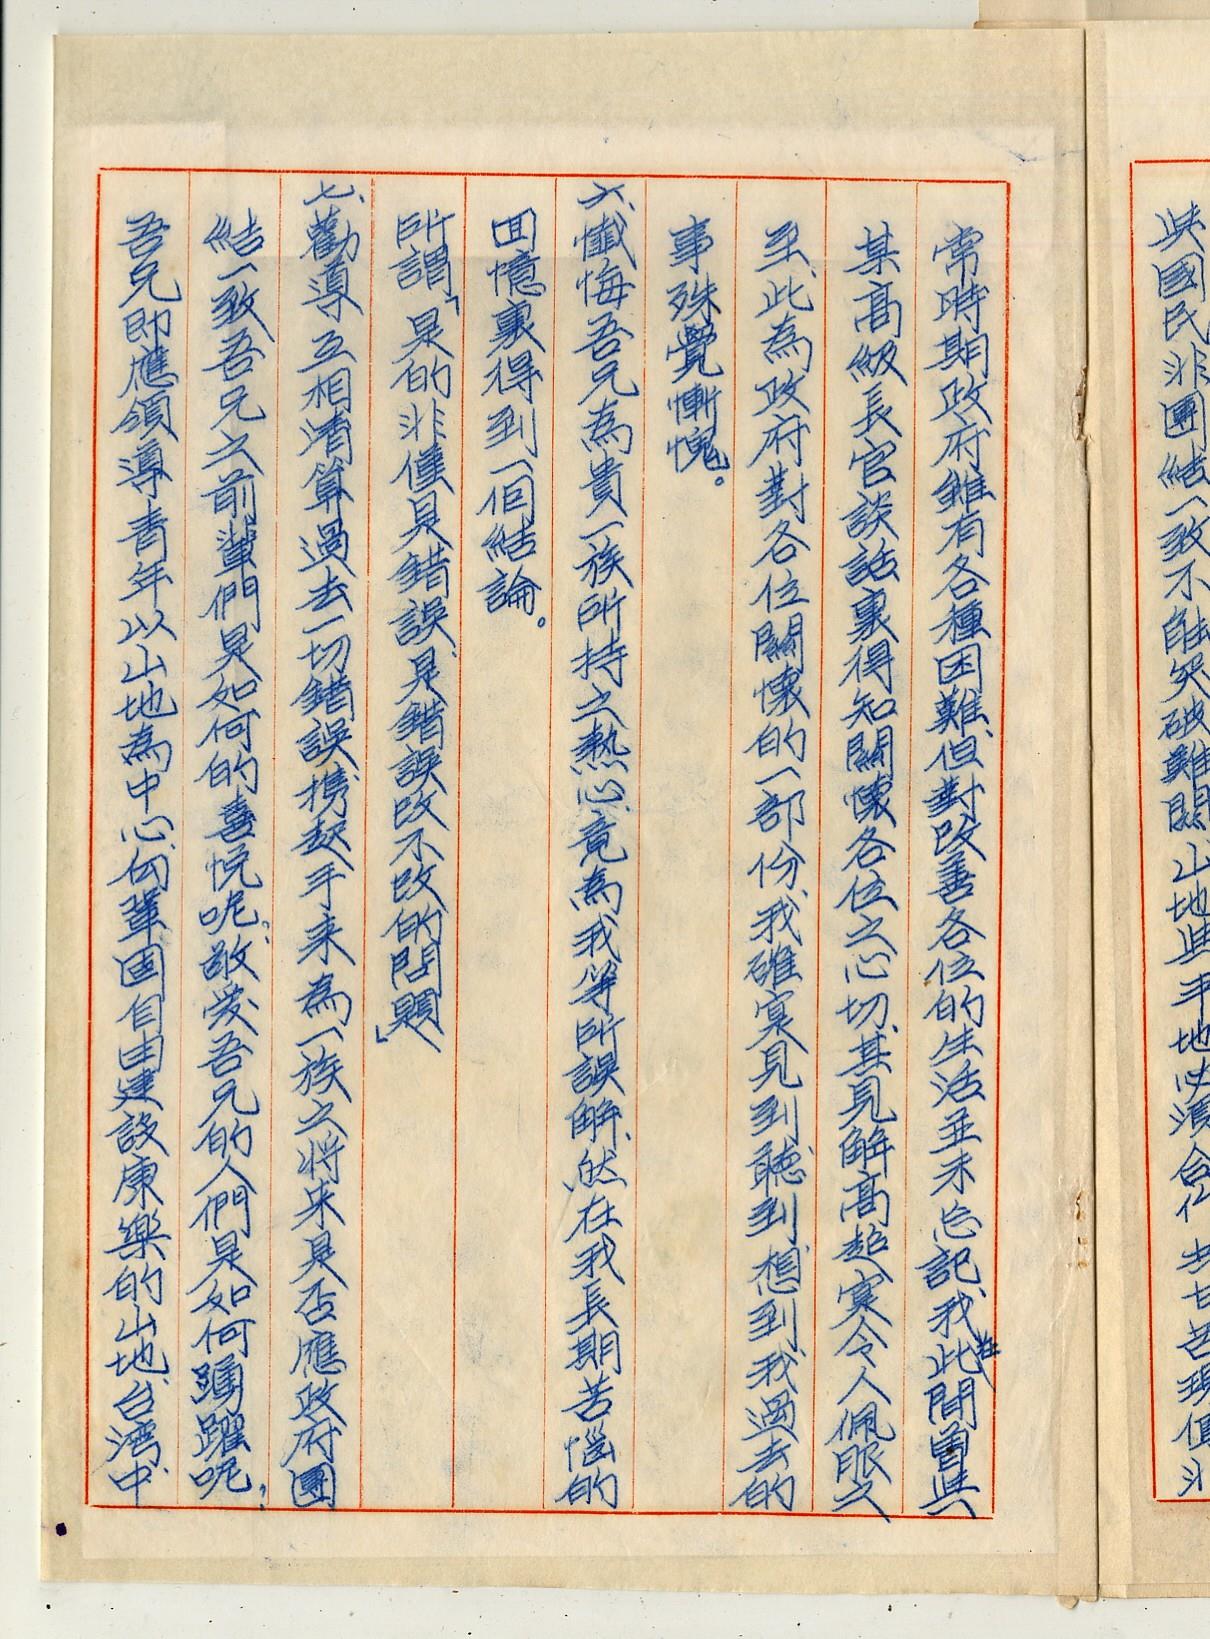 与國民非團結一致不能突破難關山地与平地必須合作
常時期政府雖有各種困難、但對改善各位的生活並未忘記、我在此間曾与
某高級長官談話裏得知關懷各位之心切、其見解高超寔令人佩服之
至、此為政府對各位關懷的一部份、我確寔見到、聽到、想到、我過去的
事殊覺慚愧。
六、懺悔吾兄為貴一族所持之熱心、竟為我等所誤解、然在我長期苦惱的
回憶裏得到一個結論。
所謂「是的非僅是錯誤、是錯誤改不改的問題」
七、勸導互相清算過去一切錯誤携起手來為一族之將來是否應政府團
結一致吾兄之前輩們是如何的喜悅呢？敬愛吾兄的人們是如何踴躍呢？
吾兄即應領導青年以山地為中心向鞏固自由建設康樂的山地、台灣、中